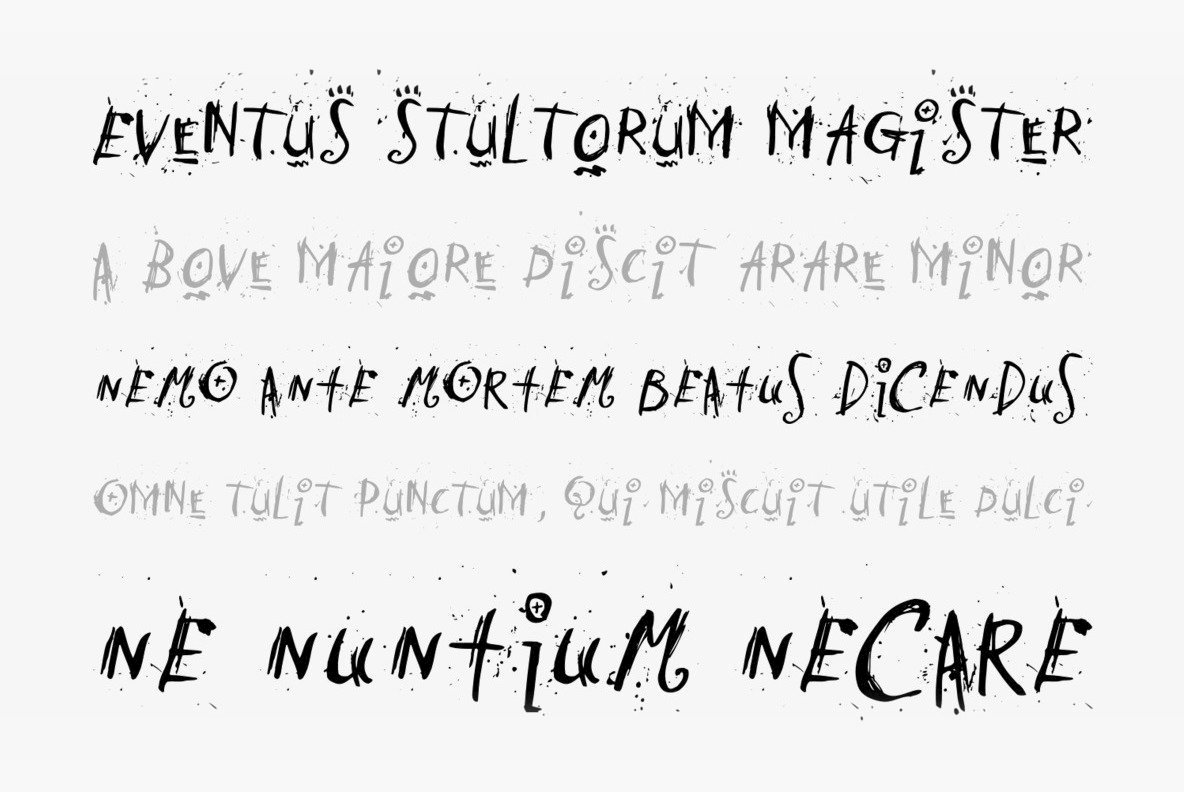 EVENTUS STULTORUM MAGISTER
A BOVE MAIORE DISCIT ARARE MINOR
NEMO ANTE MORTEM BEATUS DICENDUS
OMNE TULIT PUNCTUM, QUI MISCUIT UTILE DULCI
NE NUNTIUM NECARE